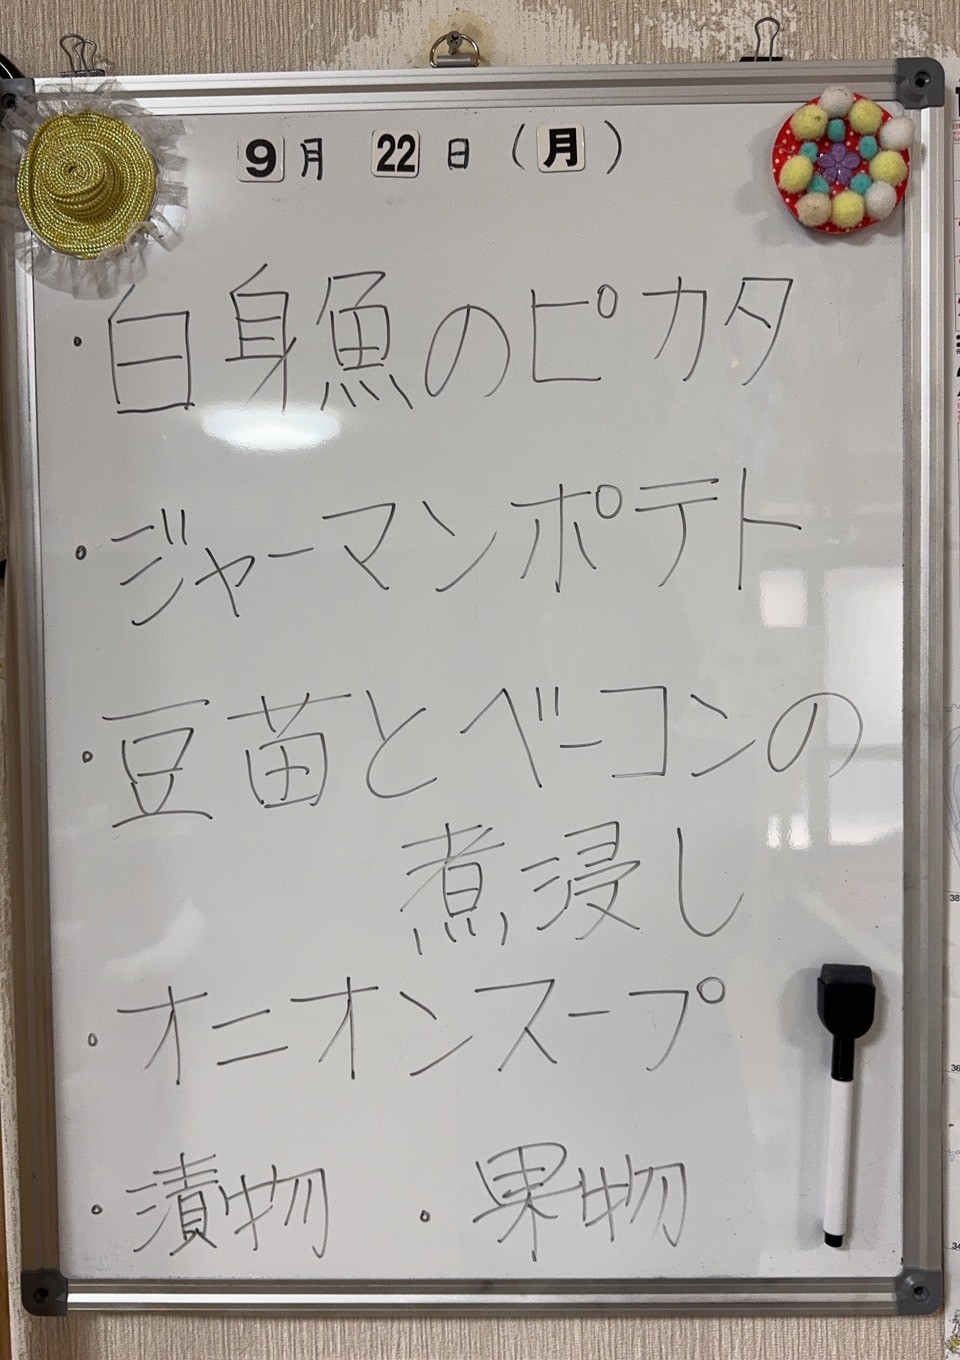 9月 22日(月)
・白身魚のピカタ
・ジャーマンポテト
・豆苗とベーコンの
煮浸し
・オニオンスープ
・漬物 ・果物